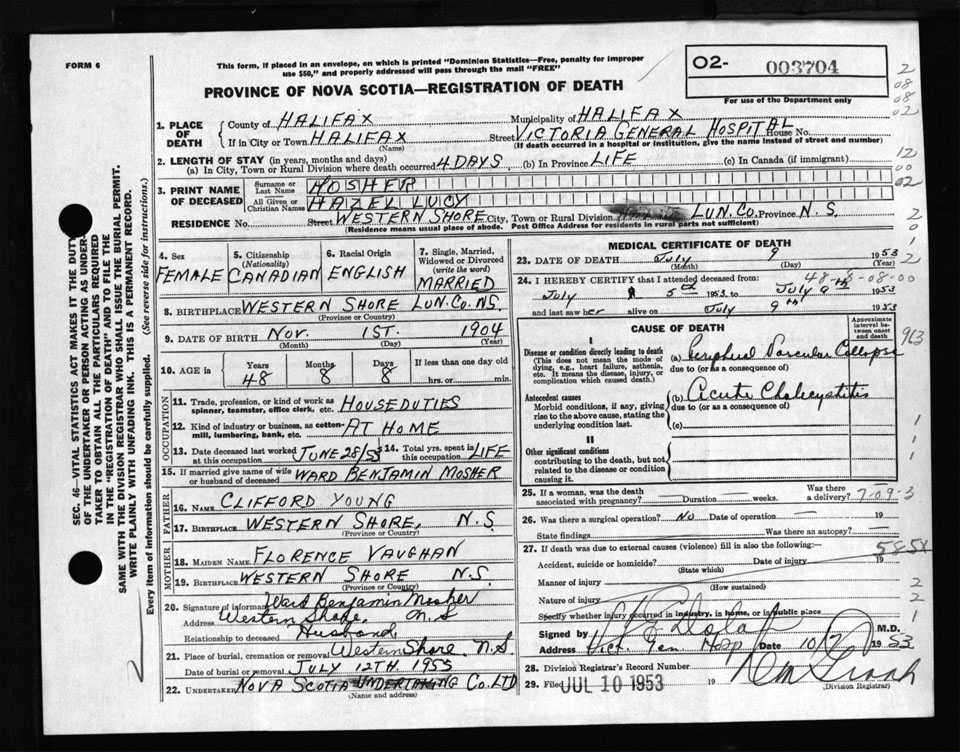 FORM 6
This form, if placed in an envelope, on which is printed "Dominion Statistics—Free, penalty for improper
use $50," and properly addressed will pass through the mail "FREE"
PROVINCE OF NOVA SCOTIA—REGISTRATION OF DEATH
O2- 003704
For use of the Department only
1. PLACE OF DEATH
County of HALIFAX Municipality of HALIFAX
If in City or Town HALIFAX Street VICTORIA GENERAL HOSPITAL House No.
(Name) (If death occurred in a hospital or institution, give the name instead of street and number)
2. LENGTH OF STAY (in years, months and days)
(a) In City, Town or Rural Division where death occurred 4 DAYS (b) In Province LIFE (c) In Canada (if immigrant)
3. PRINT NAME OF DECEASED
Surname or Last Name MOSHER
All Given or Christian Names HAZEL LUCY
RESIDENCE No. Street WESTERN SHORE City, Town or Rural Division LUN. CO. Province N. S.
(Residence means usual place of abode. Post Office Address for residents in rural parts not sufficient)
4. Sex
FEMALE
5. Citizenship (Nationality)
CANADIAN
6. Racial Origin
ENGLISH
7. Single, Married, Widowed or Divorced (write the word)
MARRIED
8. BIRTHPLACE WESTERN SHORE LUN. CO. N.S.
(Province or Country)
9. DATE OF BIRTH NOV. 1ST. 1904
(Month) (Day) (Year)
10. AGE in Years Months Days If less than one day
48 8 8 hrs. or min.
OCCUPATION
11. Trade, profession, or kind of work as
spinner, teamster, office clerk, etc. HOUSEDUTIES
12. Kind of industry or business, as cotton-
mill, lumbering, bank, etc. AT HOME
13. Date deceased last worked
at this occupation JUNE 28/53
14. Total yrs. spent in
this occupation LIFE
15. If married give name of wife
or husband of deceased WARD BENJAMIN MOSHER
FATHER
16. NAME CLIFFORD YOUNG
17. BIRTHPLACE WESTERN SHORE, N.S.
(Province or Country)
MOTHER
18. MAIDEN NAME FLORENCE VAUGHAN
19. BIRTHPLACE WESTERN SHORE N.S.
(Province or Country)
20. Signature of informant Ward Benjamin Mosher
Address Western Shore, N.S
Relationship to deceased Husband
21. Place of burial, cremation or removal Western Shore. N.S
Date of burial or removal JULY 12TH. 1953
22. UNDERTAKER NOVA SCOTIA UNDERTAKING CO. LTD
(Name and address)
MEDICAL CERTIFICATE OF DEATH
23. DATE OF DEATH July 9 1953
(Month) (Day) (Year)
48-8-08-00
24. I HEREBY CERTIFY that I attended deceased from:
July 5th 1953 to July 9th 1953
and last saw her alive on July 9th 1953
CAUSE OF DEATH
Approximate interval between onset and death
I
Disease or condition directly leading to death
(This does not mean the mode of
dying, e.g., heart failure, asthenia,
etc. It means the disease, injury, or
complication which caused death.)
(a) Peripheral Vascular Collapse
due to (or as a consequence of)
Antecedent causes
Morbid conditions, if any, giving
rise to the above cause, stating the
underlying condition last.
(b) Acute Cholecystitis
due to (or as a consequence of)
(c)
II
Other significant conditions
contributing to the death, but not
related to the disease or condition
causing it.
25. If a woman, was the death
associated with pregnancy? Duration weeks. Was there a delivery?
7-09-3
26. Was there a surgical operation? No Date of operation 19
State findings Was there an autopsy?
27. If death was due to external causes (violence) fill in also the following:—
585X
Accident, suicide or homicide? Date of injury 19
(State which)
Manner of injury
(How sustained)
Nature of injury
Specify whether injury occurred in industry, in home, or in public place
Signed by M.D.
Address Vict. Gen Hosp Date 10/7 1953
28. Division Registrar's Record Number
29. Filed JUL 10 1953 19
(Division Registrar)
SEC. 46—VITAL STATISTICS ACT MAKES IT THE DUTY
OF THE UNDERTAKER OR PERSON ACTING AS UNDER-
TAKER TO OBTAIN ALL THE PARTICULARS REQUIRED
IN THE "REGISTRATION OF DEATH" AND TO FILE THE
SAME WITH THE DIVISION REGISTRAR WHO SHALL ISSUE THE BURIAL PERMIT.
WRITE PLAINLY WITH UNFADING INK. THIS IS A PERMANENT RECORD.
Every item of information should be carefully supplied. (See reverse side for instructions.)
2
08
08
02
12
00
02
2
0
1
2
963
1
1
1
2
2
1